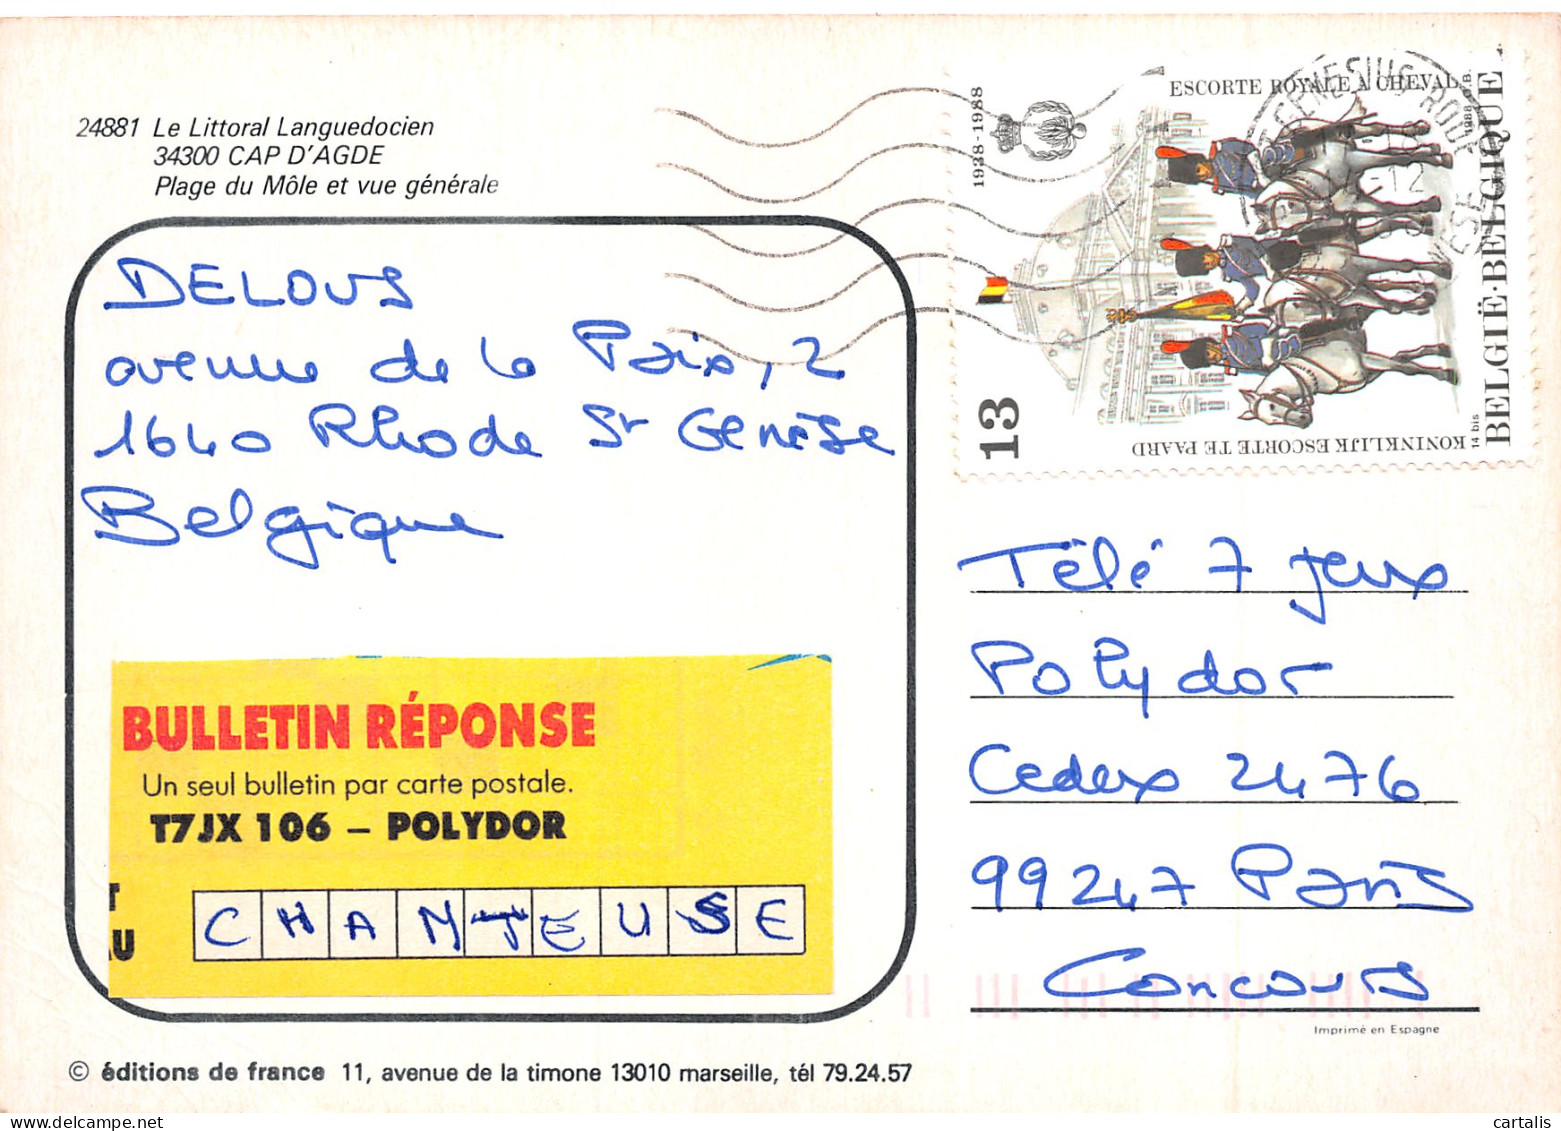 24881 Le Littoral Languedocien
34300 CAP D'AGDE
Plage du Môle et vue générale
DELOUS
avenue de la Paix, 2
1640 Rhode St Genèse
Belgique
BULLETIN RÉPONSE
Un seul bulletin par carte postale.
T7JX 106 – POLYDOR
T
AU
CHANTEUSE
© éditions de france 11, avenue de la timone 13010 marseille, tél 79.24.57
1938-1988
ESCORTE ROYALE A CHEVAL
13
KONINKLIJK ESCORTE TE PAARD
14 bis
BELGIË·BELGIQUE
1988
GENESIUS-RODE
-12
Télé 7 jeux
Polydor
Cedex 2476
99247 Paris
Concours
Imprimé en Espagne
cartalis